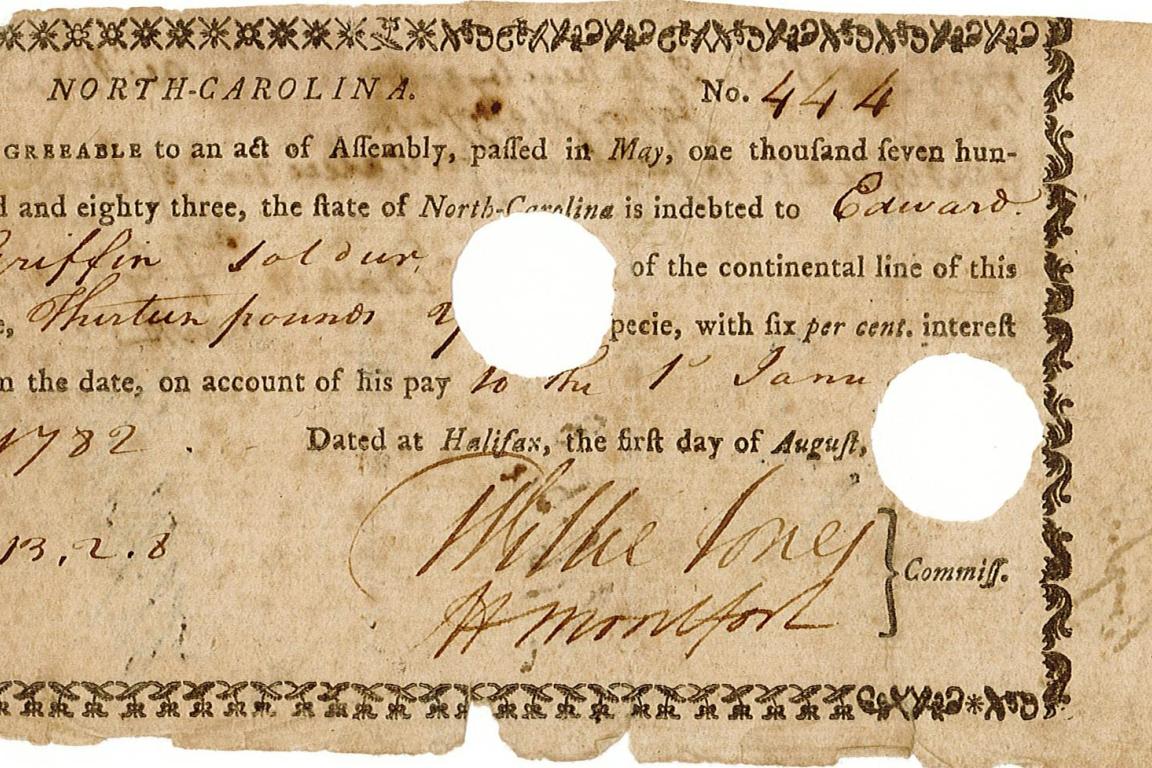 NORTH-CAROLINA. No. 444
GREEABLE to an act of Aſſembly, paſſed in May, one thouſand ſeven hun-
d and eighty three, the ſtate of North-Carolina is indebted to Edward
riffin soldier of the continental line of this
e, Thirteen pounds pecie, with ſix per cent. intereſt
m the date, on account of his pay to the 1st Janu
1782. Dated at Halifax, the firſt day of Auguſt,
13.2.8
Willie Jones
H Montfort
Commiſſ.